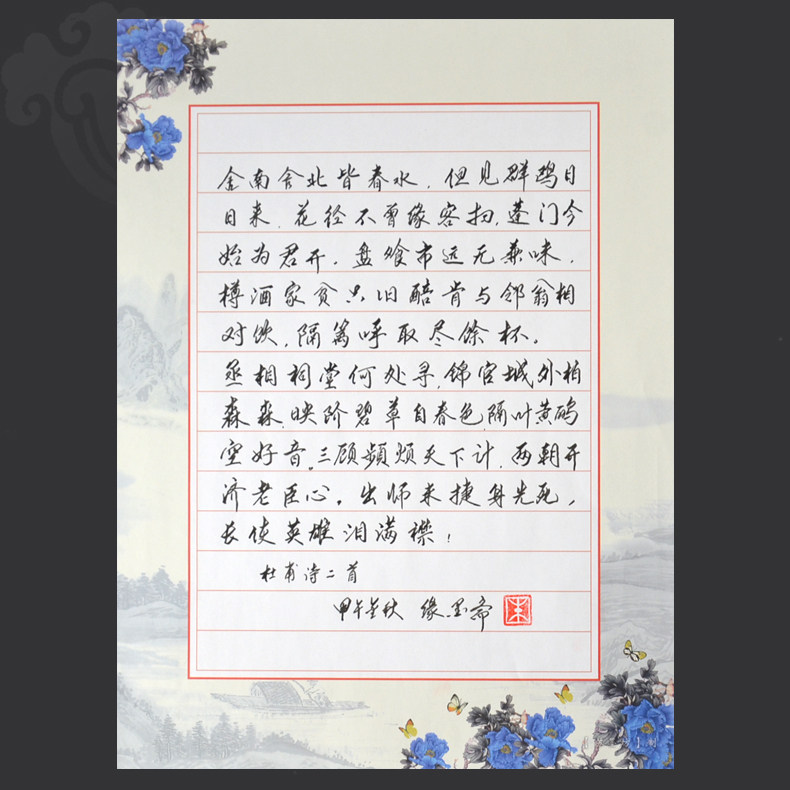 舍南舍北皆春水,但见群鸥日
日来.花径不曾缘客扫,蓬门今
始为君开。盘飧市远无兼味,
樽酒家贫只旧醅肯与邻翁相
对饮,隔篱呼取尽馀杯。
丞相祠堂何处寻,锦官城外柏
森森.映阶碧草自春色,隔叶黄鹂
空好音。三顾频烦天下计,两朝开
济老臣心。出师未捷身先死,
长使英雄泪满襟!
杜甫诗二首
甲午金秋 缘墨斋